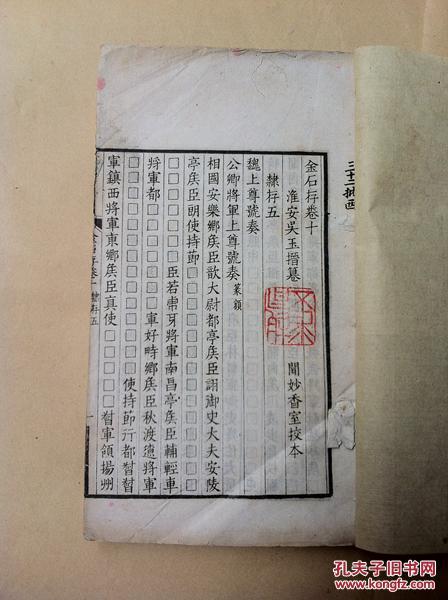 金石存卷十
淮安吳玉搢纂　聞妙香室挍本
隸存五
魏上尊號奏
公卿將軍上尊號奏篆額
相國安樂鄉矦臣歆大尉都亭矦臣詡御史大夫安陵
亭矦臣朗使持節□□□□□□□□□□□□□
□□□□□□臣若䖍牙將軍南昌亭矦臣輔輕車
將軍都□□□□□軍好畤鄉矦臣秋渡遼將軍
□□□□□□□□□□使持節行都督督
軍鎮西將軍東鄉矦臣真使□□□督軍領揚州
金石存卷十 隸存五
一
孔夫子旧书网
www.kongfz.com